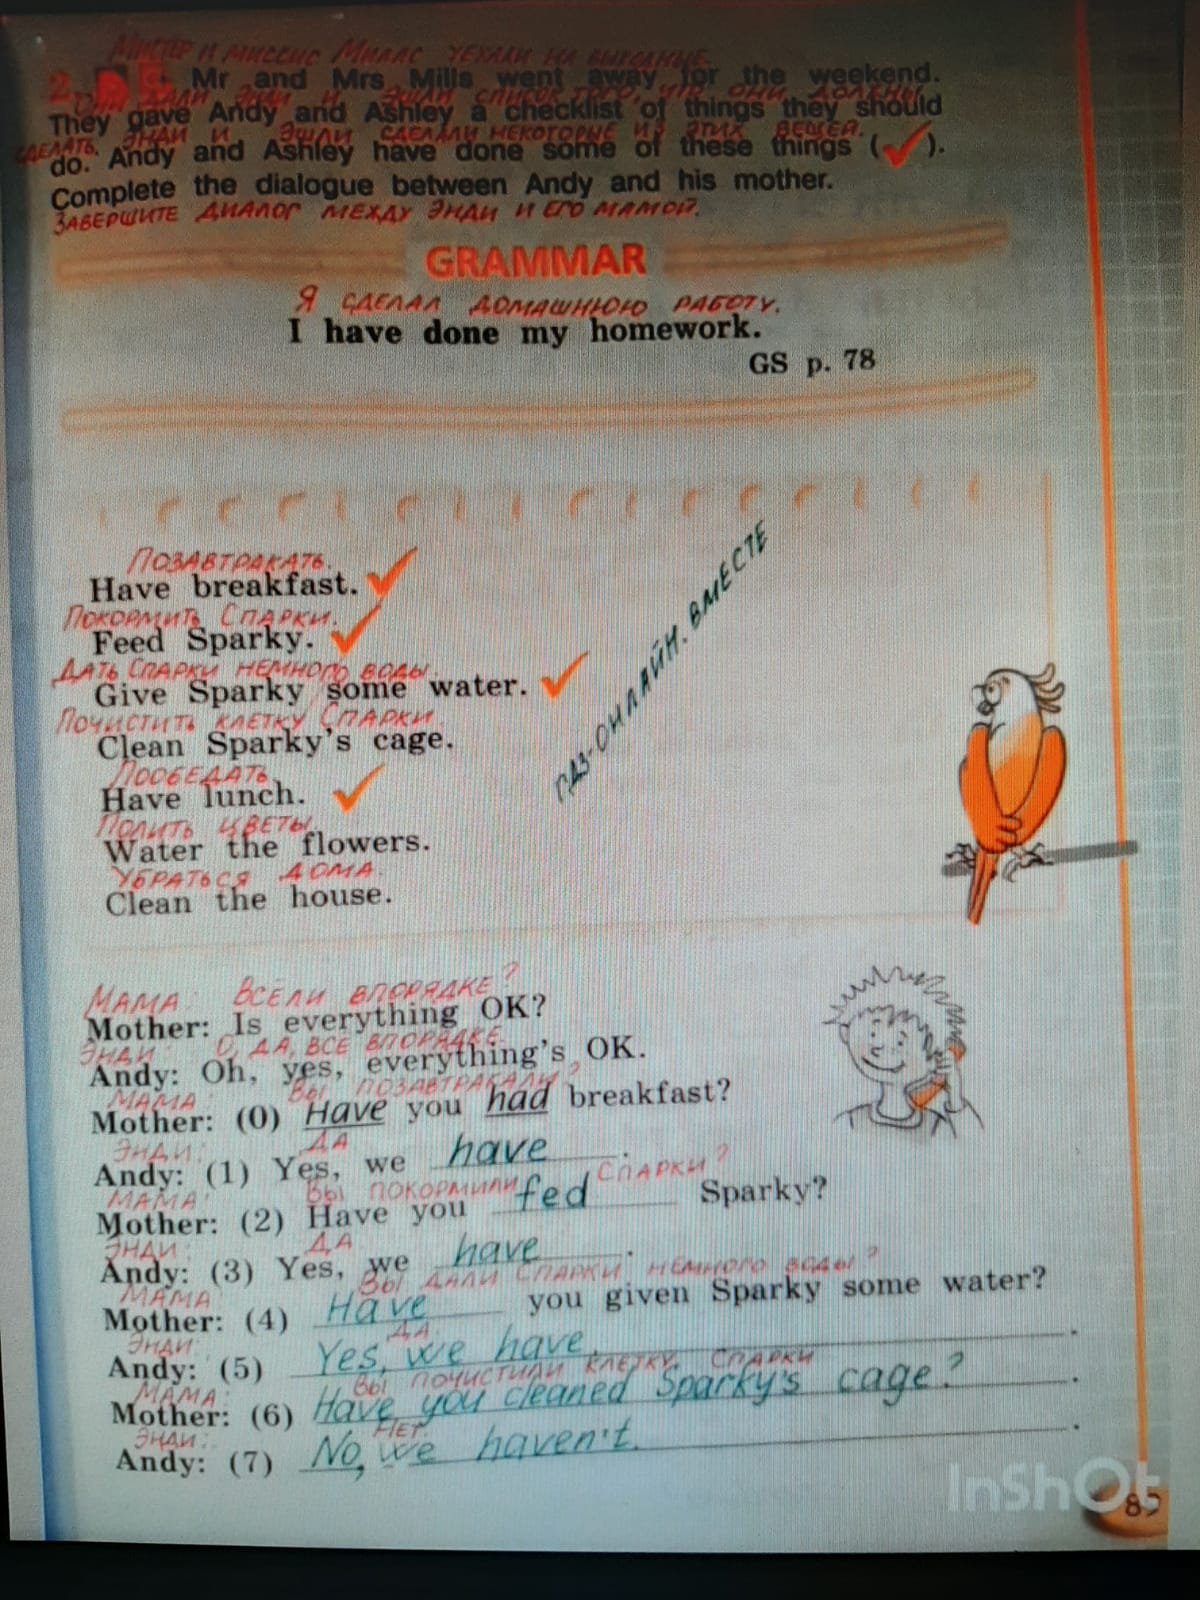 Мистер и миссис Миллс уехали на выходные.
2. Mr and Mrs Mills went away for the weekend.
Они дали Энди и Эшли список того, что они должны
They gave Andy and Ashley a checklist of things they should
сделать. Энди и Эшли сделали некоторые из этих вещей.
do. Andy and Ashley have done some of these things (✓).
Complete the dialogue between Andy and his mother.
Завершите диалог между Энди и его мамой.
GRAMMAR
Я сделал домашнюю работу.
I have done my homework.
GS p. 78
Позавтракать.
Have breakfast. ✓
Покормить Спарки.
Feed Sparky. ✓
Дать Спарки немного воды.
Give Sparky some water. ✓
Почистить клетку Спарки.
Clean Sparky's cage.
Пообедать.
Have lunch. ✓
Полить цветы.
Water the flowers.
Убраться дома.
Clean the house.
ГДЗ-ОНЛАЙН.ВМЕСТЕ
Мама: Всели впорядке?
Mother: Is everything OK?
Энди: О, да, все впорядке.
Andy: Oh, yes, everything's OK.
Мама: Вы позавтракали?
Mother: (0) Have you had breakfast?
Энди: Да
Andy: (1) Yes, we have.
Мама: Вы покормили Спарки?
Mother: (2) Have you fed Sparky?
Энди: Да
Andy: (3) Yes, we have.
Мама Вы дали Спарки немного воды?
Mother: (4) Have you given Sparky some water?
Энди: Да.
Andy: (5) Yes, we have.
Мама: Вы почистили клетку Спарки
Mother: (6) Have you cleaned Sparky's cage?.
Энди: Нет.
Andy: (7) No, we haven't.
InShOt
85